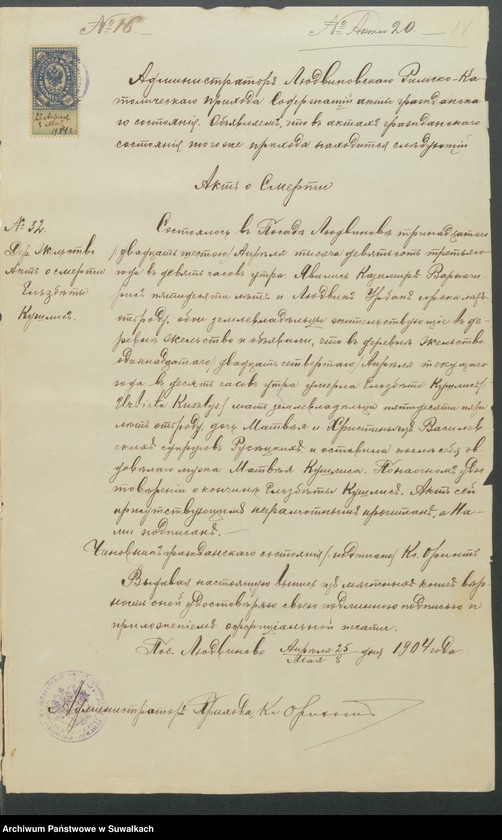 № 16.
№ Акта 20
25 Апрѣля
8 Мая
1904 г.
Администраторъ Людвиновскаго Римско-Ка-
толическаго прихода Содержащій акты гражданска-
го состоянія. Объявляемъ, что въ актахъ гражданскаго
состоянія того же прихода находится слѣдующій
Актъ о Смерти
№ 32.
Актъ о смерти
Елзбѣты
Кушлисъ.
Состоялось въ Посадѣ Людвиновъ тринадцатаго
/двадцать шестого/ Апрѣля тысяча девятьсотъ третьяго
года въ девять часовъ утра. Явились Казимиръ
пятидесяти лѣтъ и Людвикъ Урбанъ сорока лѣтъ
отъ роду, оба земледѣльцы жительствующіе въ де-
ревнѣ и объявили, что въ деревнѣ
одиннадцатаго /двадцать четвертаго/ Апрѣля текущаго
года въ десять часовъ утра умерла Елзбѣта Кушлисъ/
/Elzbieta Kuszlys/
лѣтъ отъ роду, дочь Матвѣя и Христины Василев
скихъ супруговъ и оставила послѣ себя ов
довѣлаго мужа Матвѣя Кушлиса. По настоящемъ удос
товѣреніи о кончинѣ Елзбѣты Кушлисъ. Актъ сей
присутствующимъ неграмотнымъ прочитанъ, а На-
ми подписанъ. —
Чиновникъ гражданскаго состоянія /подписано/ Кс.
Выдавая настоящую выпись изъ мѣстныхъ книгъ вѣр
ность оной удостовѣряю своею подлинною подписью и
приложеніемъ оффиціальной печати.
Пос. Людвиново Апрѣля 25 / Мая 8 дня 1904 года
Администраторъ Прихода, Кс.
Archiwum Państwowe w Suwałkach